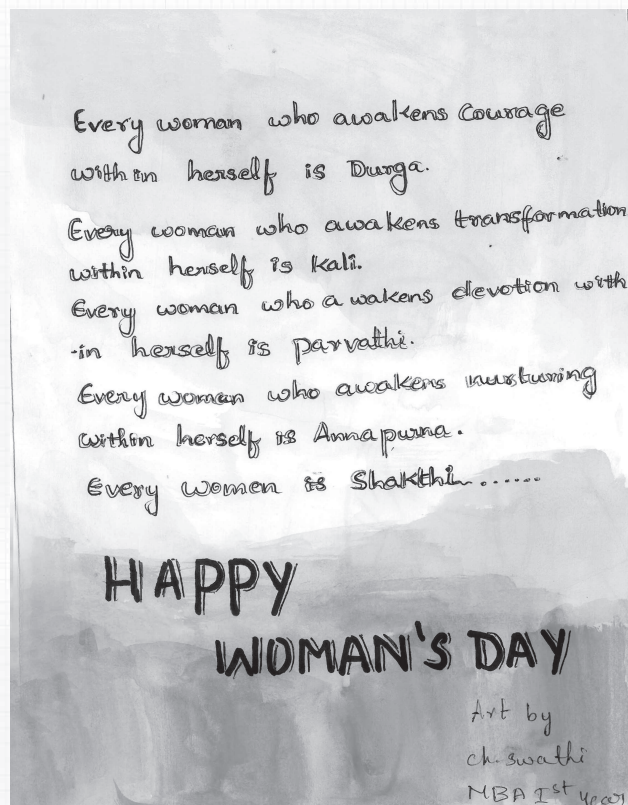 Every woman who awakens Courage
within herself is Durga.
Every woman who awakens transformation
within herself is Kali.
Every woman who awakens devotion with
-in herself is parvathi.
Every woman who awakens nursturing
within herself is Annapurna.
Every women is Shakthi.......
HAPPY
WOMAN'S DAY
Art by
ch. swathi
MBA Ist year